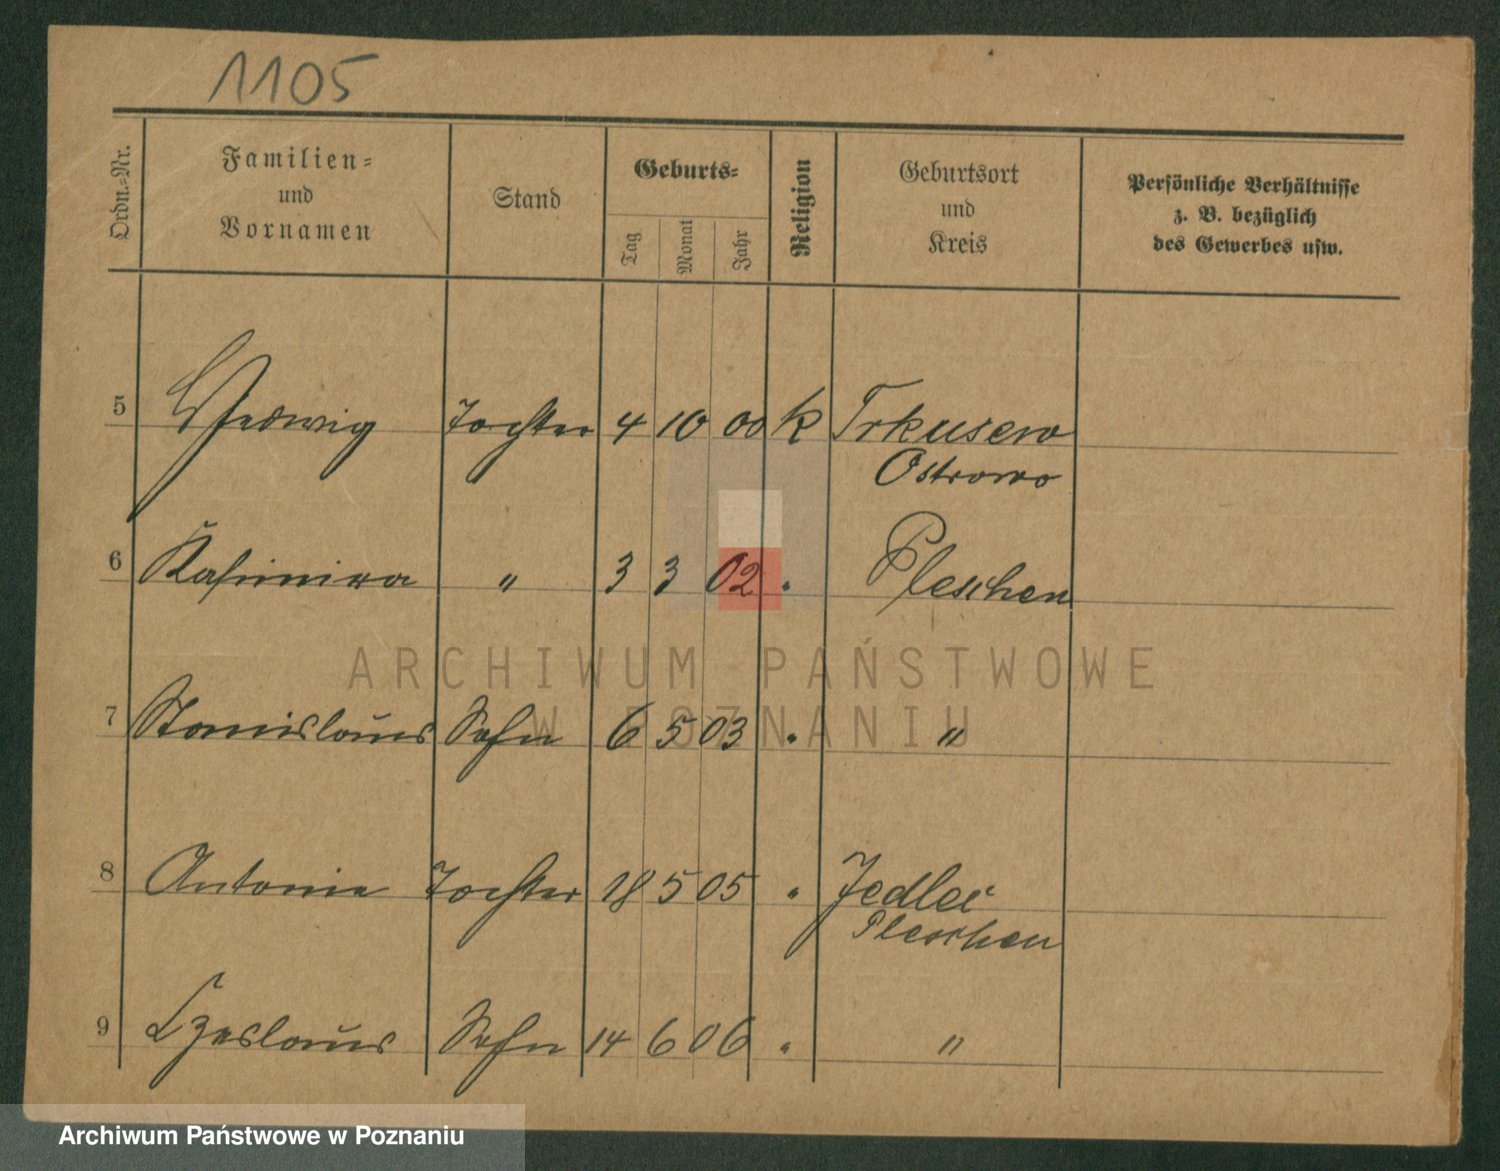 1105
Ordn.-Nr.
Familien-
und
Vornamen
Stand
Geburts-
Tag
Monat
Jahr
Religion
Geburtsort
und
Kreis
Persönliche Verhältnisse
z. B. bezüglich
des Gewerbes usw.
5 Hedwig Tochter 4 10 00 k Trkusew
Ostrowo
6 Kasimira " 3 3 02 " Pleschen
ARCHIWUM PAŃSTWOWE
W POZNANIU
7 Stanislaus Sohn 6 5 03 " "
8 Antonie Tochter 18 5 05 " Jedlec
Pleschen
9 Czeslaus Sohn 14 6 06 " "
Archiwum Państwowe w Poznaniu